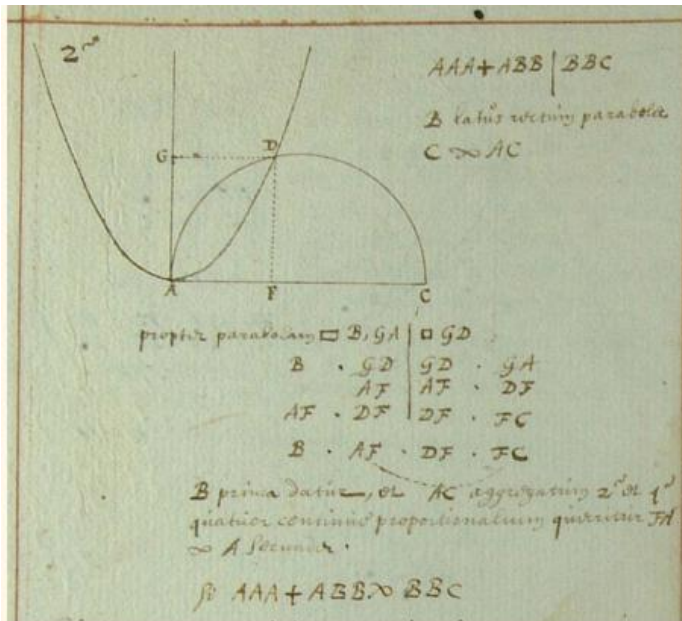 2ᵃ
AAA + ABB | BBC
B latus rectum parabolæ
C ∞ AC
G D
A F C
propter parabolam ▭ B, GA | □ GD
B . GD | GD . GA
AF | AF . DF
AF . DF | DF . FC
B . AF . DF . FC
B prima datur, et AC aggregatum 2ᵃ et 4ᵃ
quatuor continue proportionalium quæritur FA
∞ A secunda.
AAA + ABB ∞ BBC